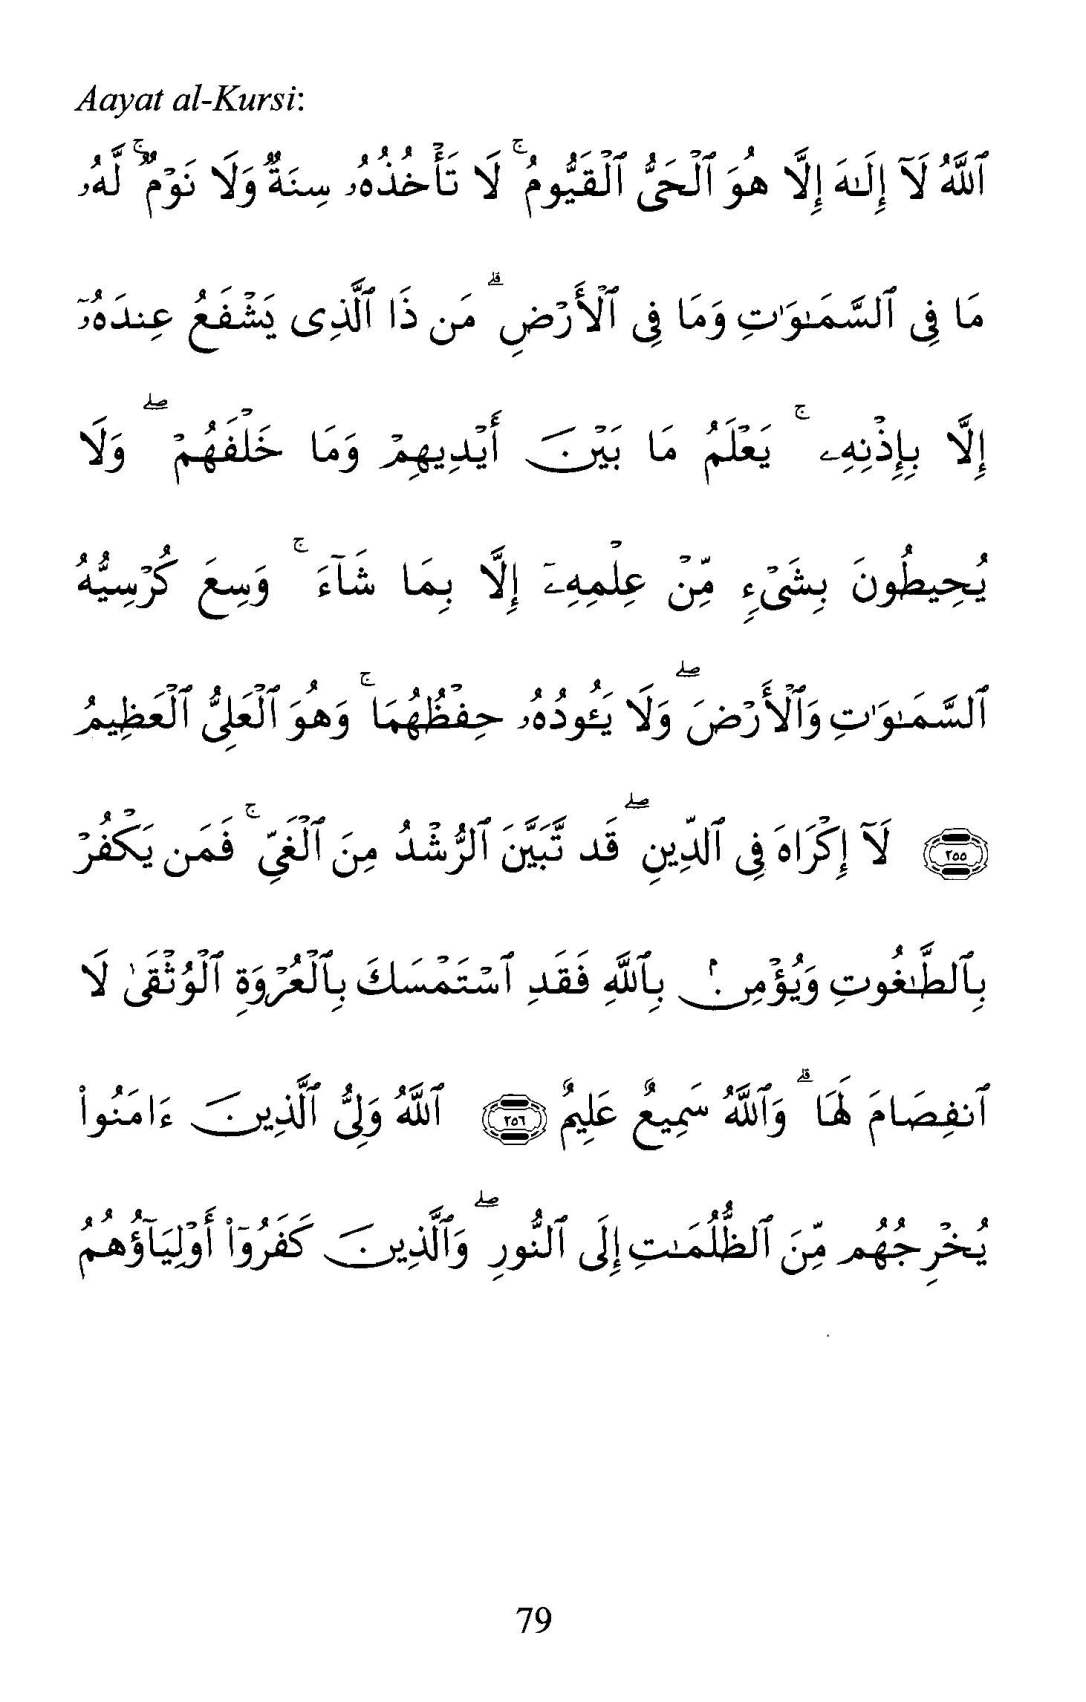 Aayat al-Kursi:
ٱللَّهُ لَآ إِلَـٰهَ إِلَّا هُوَ ٱلْحَىُّ ٱلْقَيُّومُ ۚ لَا تَأْخُذُهُۥ سِنَةٌ وَلَا نَوْمٌ ۚ لَّهُۥ
مَا فِى ٱلسَّمَـٰوَٰتِ وَمَا فِى ٱلْأَرْضِ ۗ مَن ذَا ٱلَّذِى يَشْفَعُ عِندَهُۥٓ
إِلَّا بِإِذْنِهِۦ ۚ يَعْلَمُ مَا بَيْنَ أَيْدِيهِمْ وَمَا خَلْفَهُمْ ۖ وَلَا
يُحِيطُونَ بِشَىْءٍ مِّنْ عِلْمِهِۦٓ إِلَّا بِمَا شَآءَ ۚ وَسِعَ كُرْسِيُّهُ
ٱلسَّمَـٰوَٰتِ وَٱلْأَرْضَ ۖ وَلَا يَـُٔودُهُۥ حِفْظُهُمَا ۚ وَهُوَ ٱلْعَلِىُّ ٱلْعَظِيمُ
٢٥٥ لَآ إِكْرَاهَ فِى ٱلدِّينِ ۖ قَد تَّبَيَّنَ ٱلرُّشْدُ مِنَ ٱلْغَىِّ ۚ فَمَن يَكْفُرْ
بِٱلطَّـٰغُوتِ وَيُؤْمِنۢ بِٱللَّهِ فَقَدِ ٱسْتَمْسَكَ بِٱلْعُرْوَةِ ٱلْوُثْقَىٰ لَا
ٱنفِصَامَ لَهَا ۗ وَٱللَّهُ سَمِيعٌ عَلِيمٌ ٢٥٦ ٱللَّهُ وَلِىُّ ٱلَّذِينَ ءَامَنُوا۟
يُخْرِجُهُم مِّنَ ٱلظُّلُمَـٰتِ إِلَى ٱلنُّورِ ۖ وَٱلَّذِينَ كَفَرُوٓا۟ أَوْلِيَآؤُهُمُ
79